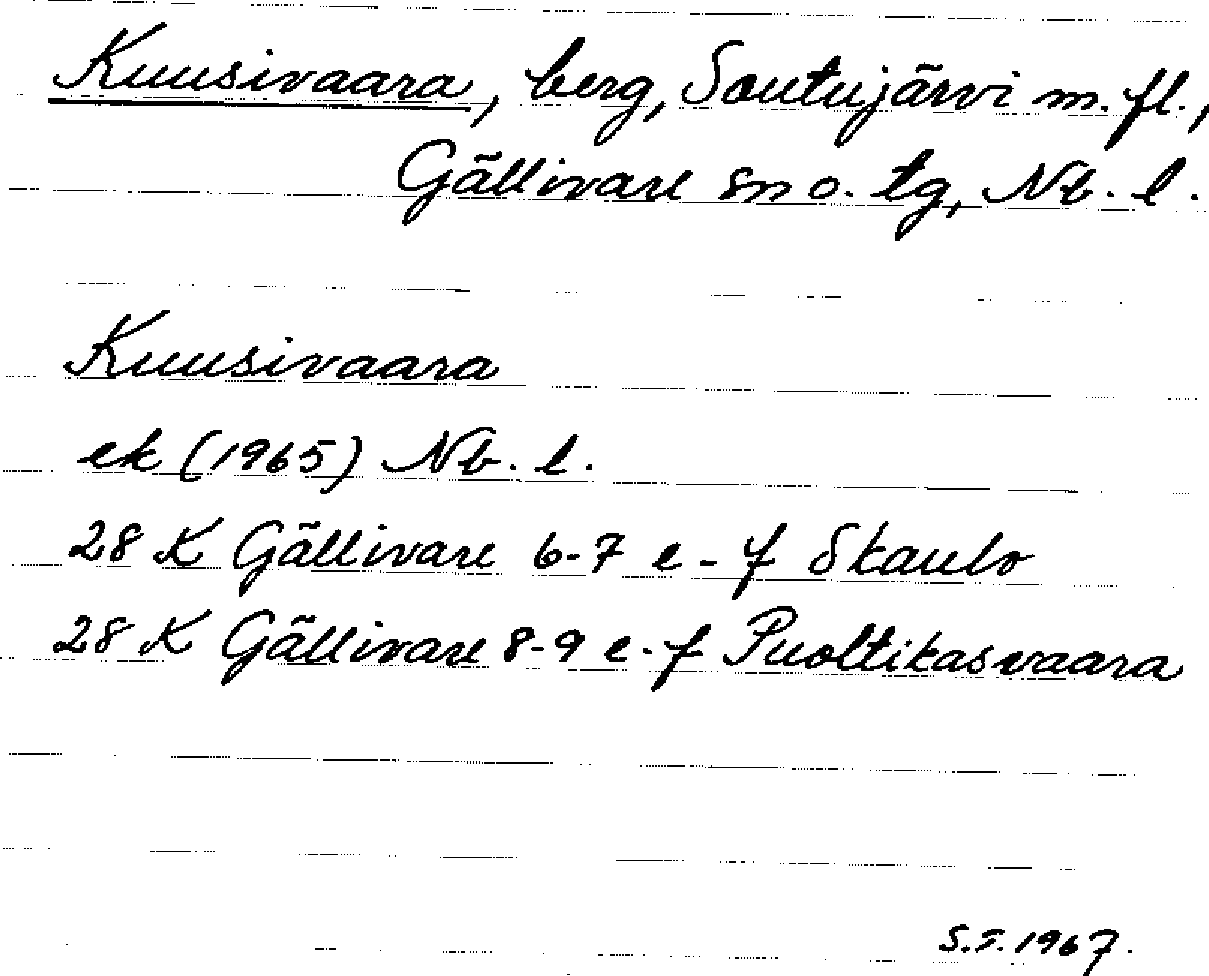 Kuusivaara, berg, Soutujärvi m. fl.,
Gällivare sn o. tg, Nb. l.
Kuusivaara
ek (1965) Nb. l.
28 K Gällivare 6-7 e-f Skaulo
28 K Gällivare 8-9 e-f Puoltikasvaara
S.F. 1967.